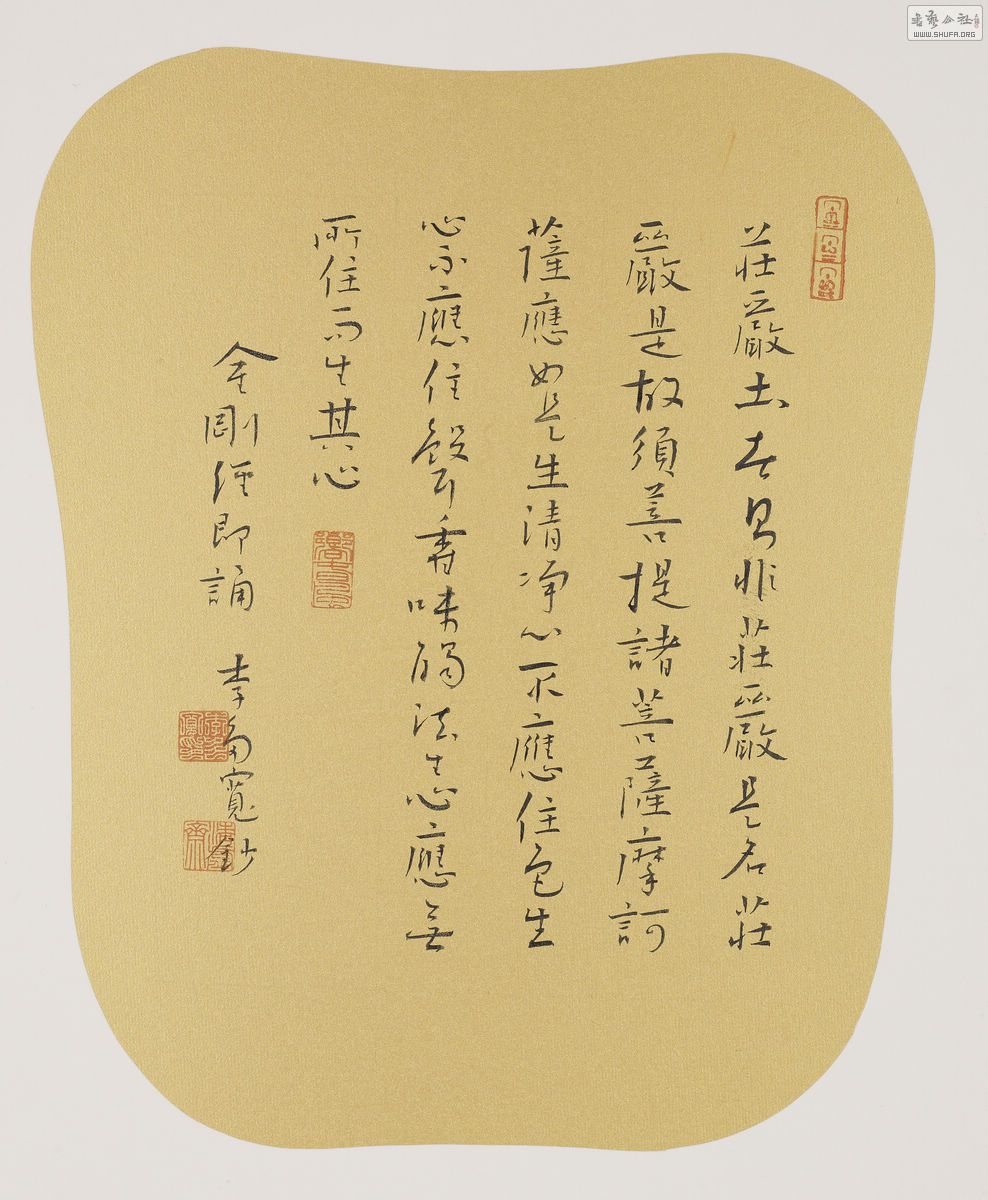 莊嚴土者即非莊嚴是名莊
嚴是故須菩提諸菩薩摩訶
薩應如是生清净心不應住色生
心不應住聲香味觸法生心應無
所住而生其心
金剛經即誦 李寬鈔
書藝公社
WWW.SHUFA.ORG